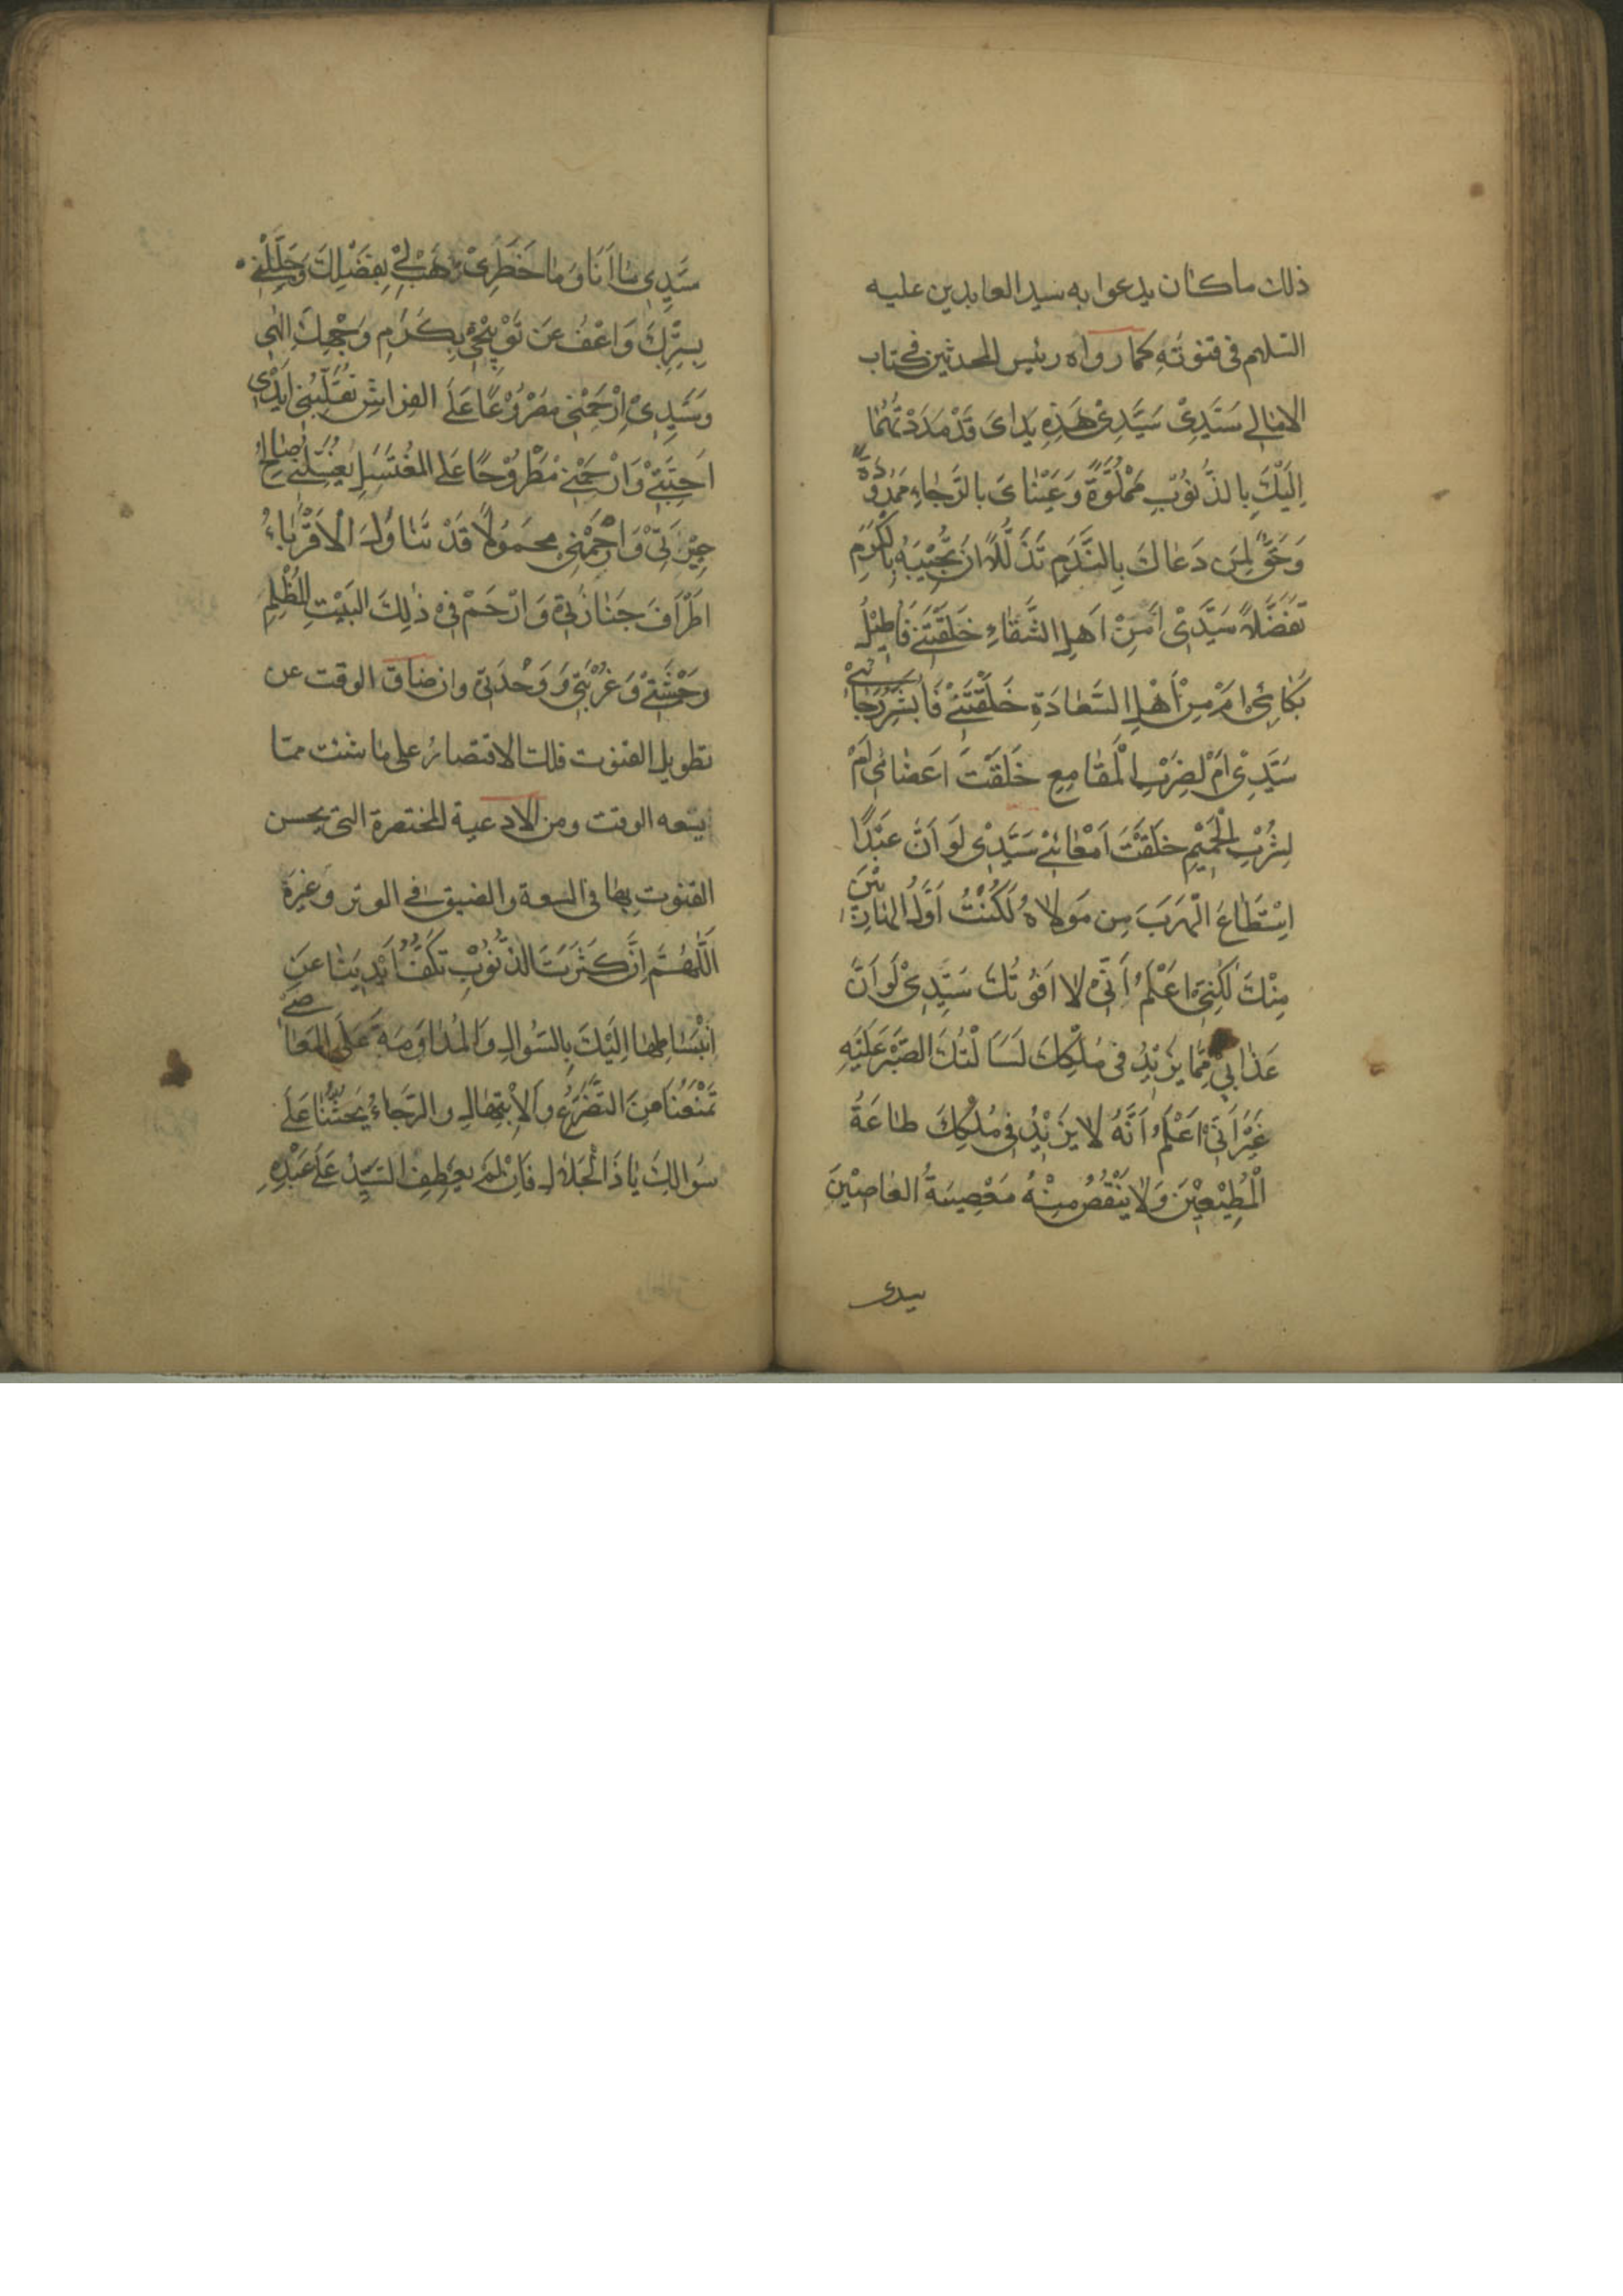 ذلك ما كان يدعوا به سيد العابدين عليه
السّلام فى قنوته كما رواه رئيس المحدثين فى كتاب
الامالى سَيَّدِىْ سَيَّدِىْ هَذِهِ يَداىَ قَدْ مَدَدْتُهُمٰا
اِلَيْكَ بِالذُّنُوْبِ مَمْلُوَّةً وَعَيْنٰاىَ بِالرَّجٰاءِ مَمْدُوْدَةً
وَحَقٌّ لِمَن دَعٰاكَ بِالنَّدَمِ تَذَلُّلاً اَنْ تُجِيْبَهُ بِالْكَرَمِ
تَفَضُّلاً سَيَّدِىْ اَمِنْ اَهْلِ الشَّقٰاءِ خَلَقْتَنِىْ فَاُطِيْلُ
بُكٰائِىْ اَمْ مِنْ اَهْلِ السَّعٰادَةِ خَلَقْتَنِىْ فَاُبَشِّرُ رَجٰائِىْ
سَيَّدِىْ اَمْ لِضَرْبِ الْمَقٰامِعِ خَلَقْتَ اَعْضٰائِى اَمْ
لِشُرْبِ الْحَمِيْمِ خَلَقْتَ اَمْعٰائِىْ سَيَّدِىْ لَوْ اَنَّ عَبْدًا
اِسْتَطٰاعَ الْهَرَبَ مِن مَوْلاهُ لَكُنْتُ اَوَّلَ الْهٰارِبِيْنَ
مِنْكَ لٰكِنِّىْ اَعْلَمُ اَنِّىْ لا اَفُوْتُكَ سَيَّدِىْ لَوْ اَنَّ
عَذٰابِىْ مِمّٰا يَزِيْدُ فى مُلْكِكَ لَسَأَلْتُكَ الصَّبْرَ عَلَيْهِ
غَيْرَ اَنِّىْ اَعْلَمُ اَنَّهُ لا يَزِيْدُ فى مُلْكِكَ طٰاعَةُ
الْمُطِيْعِيْنَ وَلا يَنْقُصُ مِنْهُ مَعْصِيَةُ الْعٰاصِيْنَ
سيدى
سَيَّدِى مٰا اَنَا وَمٰا خَطَرِىْ هَبْ لِىْ بِفَضْلِكَ وَجَلِّلْنِىْ
بِسِتْرِكَ وَاعْفُ عَنْ تَوْبِيْخِىْ بِكَرَمِ وَجْهِكَ اِلٰهِى
وَسَيَّدِىْ اِرْحَمْنِىْ مَصْرُوْعًا عَلَى الفِرٰاشِ تُقَلِّبُنِىْ اَيْدِى
اَحِبَّتِىْ وَارْحَمْنِىْ مَطْرُوْحًا عَلَى المُغْتَسَلِ يُغَسِّلُنِىْ صٰالِحُ
جِيْرَتِىْ وَارْحَمْنِىْ مَحْمُوْلاً قَدْ تَنٰاوَلَ الْاَقْرِبٰاءُ
اَطْرٰافَ جَنٰازَتِىْ وَارْحَمْ فِىْ ذٰلِكَ البَيْتِ الْمُظْلِمِ
وَحْشَتِىْ وَغُرْبَتِىْ وَوَحْدَتِىْ وان ضاق الوقت عن
تطويل القنوت فلك الاقتصارُ على ما شئت ممّا
يسعه الوقت ومن الادعية المختصرة التى يحسن
القنوت بها فى السعة والضيق فى الوتر وغيره
اَللّٰهُمَّ اِنَّ كَثْرَةَ الذُّنُوْبِ تَكُفُّ اَيْدِيَنٰا عَنِ
اِنْبِسٰاطِهٰا اِلَيْكَ بِالسُّوالِ وَالْمُدٰاوَمَةَ عَلَى الْمَعٰاصِىْ
تَمْنَعُنَا مِنَ التَّضَرُّعِ وَالْاِبْتِهٰالِ وَالرَّجٰاءُ يَحُثُّنٰا عَلَى
سُوالِكَ يٰا ذَا الْجَلالِ فَاِنْ لَمْ يَعْطِفِ السَّيِّدُ عَلَى عَبْدِهِ